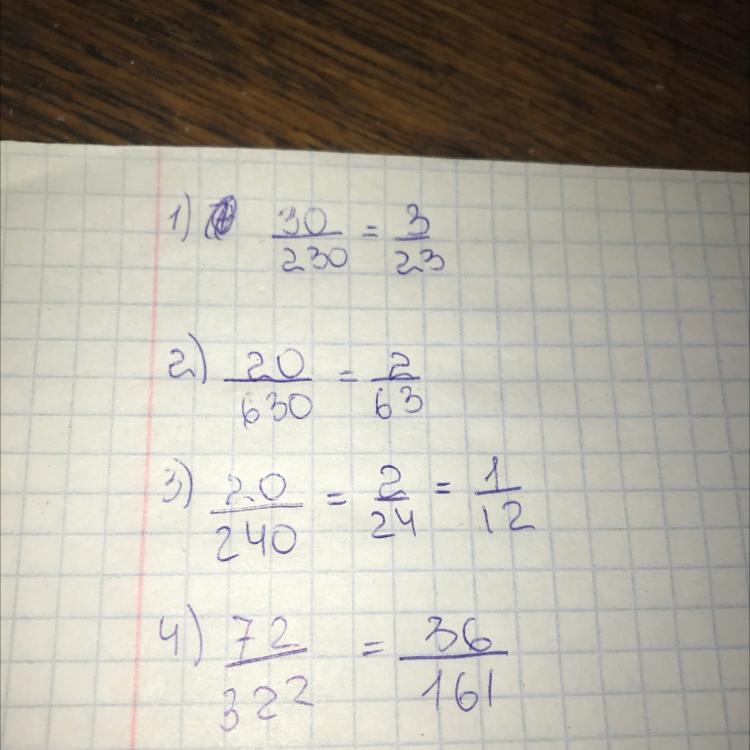 1) 30/230 = 3/23
2) 20/630 = 2/63
3) 20/240 = 2/24 = 1/12
4) 72/322 = 36/161